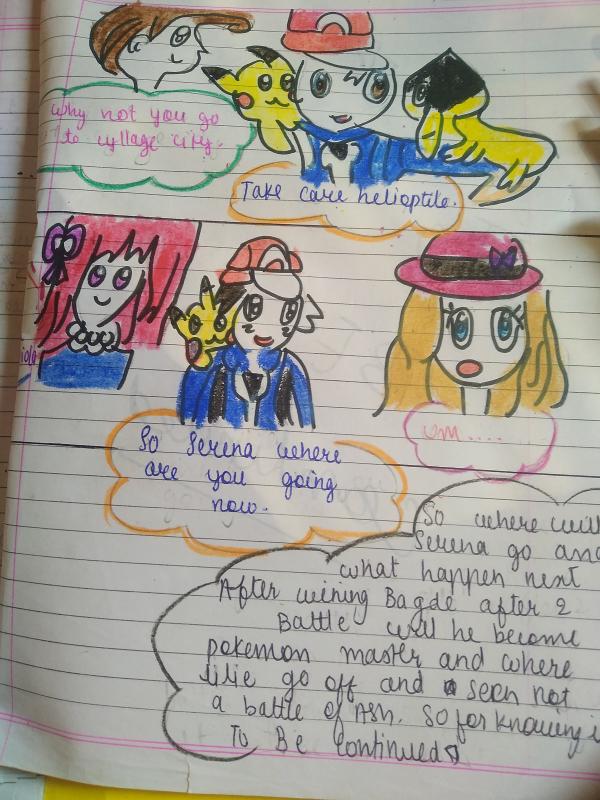 why not you go
to cyllage city.
Take care helioptile.
So Serena where
are you going
now.
um....
So where will
Serena go and
what happen next
After wining Bagde after 2
Battle will he become
pokemon master and where
lilie go off and seen not
a battle of Ash. So for knowing i
To Be Continued